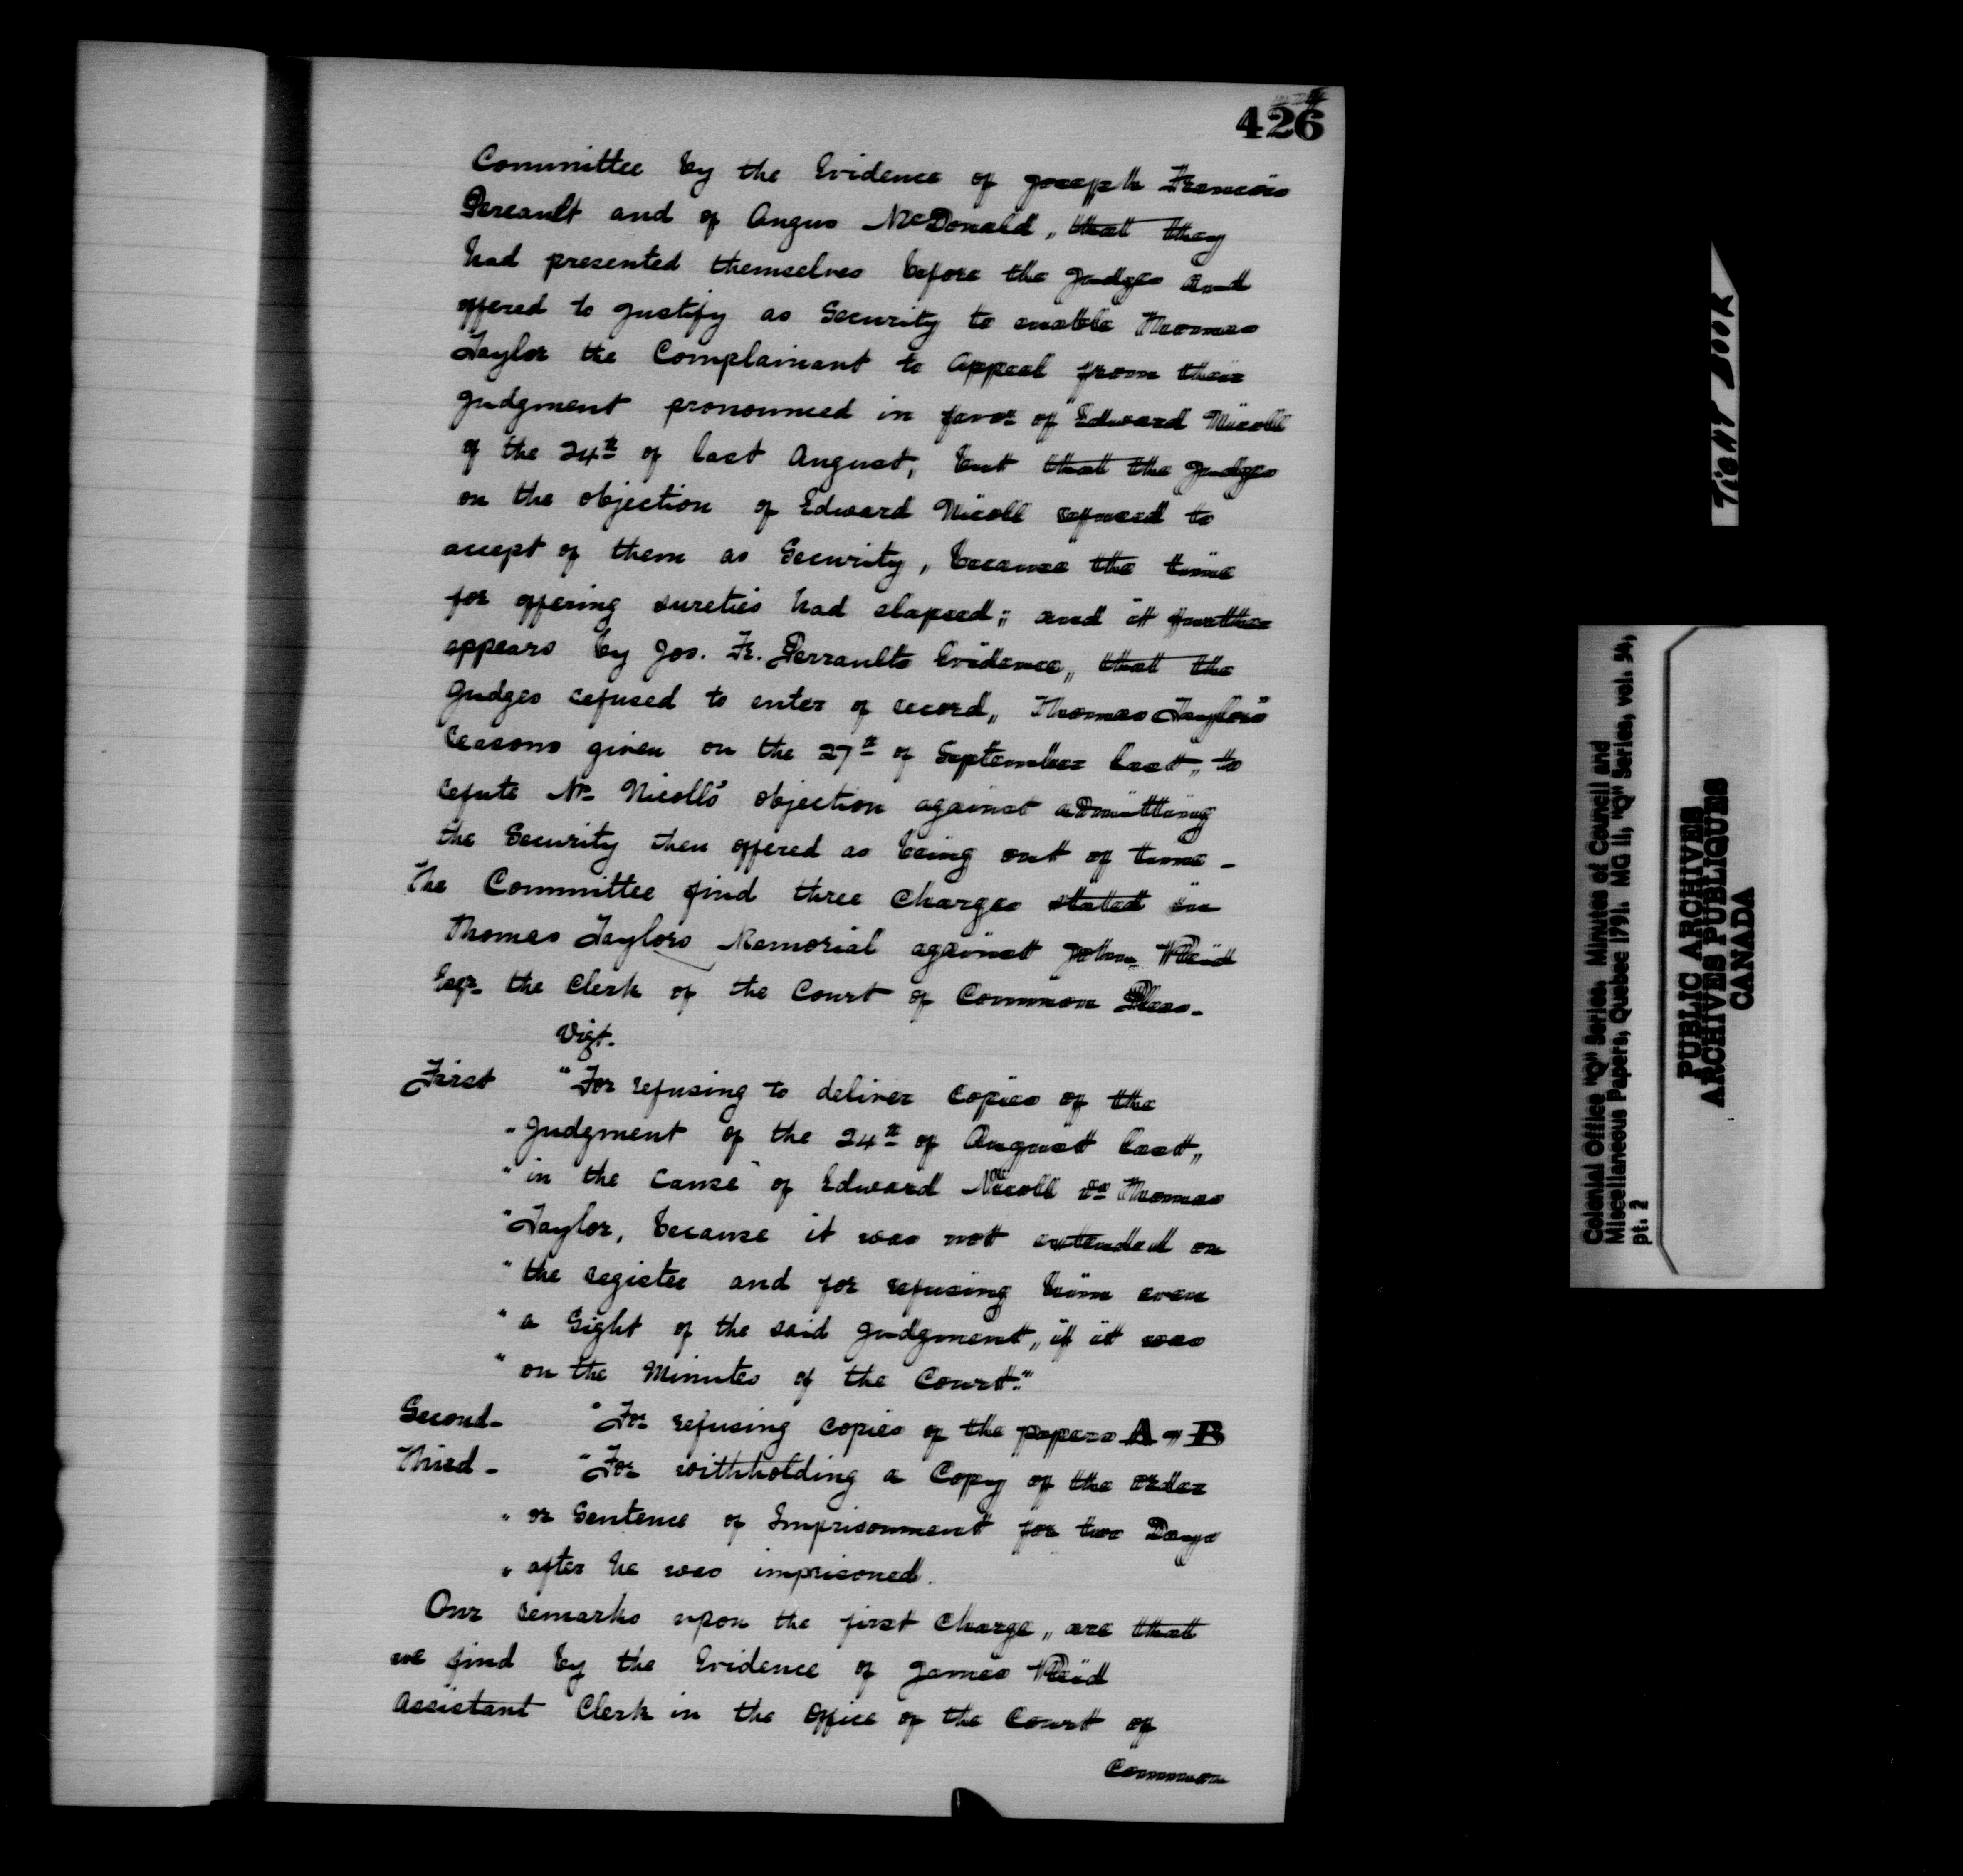 426
Committee by the Evidence of Joseph Francois
Pereault and of Angus McDonald, that they
had presented themselves before the Judges and
offered to justify as Security to enable Thomas
Taylor the Complainant to appeal from their
Judgment pronounced in favor of Edward Nicoll
of the 24th of last August, but that the Judges
on the objection of Edward Nicoll refused to
accept of them as Security, because the time
for offering sureties had elapsed; and it further
appears by Jos. Fr. Perraults Evidence, that the
Judges refused to enter of record, Thomas Taylor's
reasons given on the 27th of September last, to
refute Mr Nicoll's objection against admitting
the Security then offered as being out of time -
The Committee find three charges stated in
Thomas Taylors Memorial against John Reid
Esqr the Clerk of the Court of Common Pleas.
Vizt.
First "For refusing to deliver copies of the
" Judgment of the 24th of August last,
" in the cause of Edward Nicoll vs Thomas
" Taylor, because it was not extended on
" the register and for refusing him even
" a Sight of the said Judgment, if it was
" on the Minutes of the Court."
Second - "For refusing copies of the papers A & B
Third - "For withholding a Copy of the order
" or Sentence of Imprisonment for two Days
" after he was imprisoned.
Our remarks upon the first Charge, are that
we find by the Evidence of James Reid
Assistant Clerk in the Office of the Court of
Common
TIGHT BOOK
Colonial Office "Q" Series, Minutes of Council and
Miscellaneous Papers, Quebec 1791. MG 11, "Q" Series, vol. 54,
pt. 2
PUBLIC ARCHIVES
ARCHIVES PUBLIQUES
CANADA